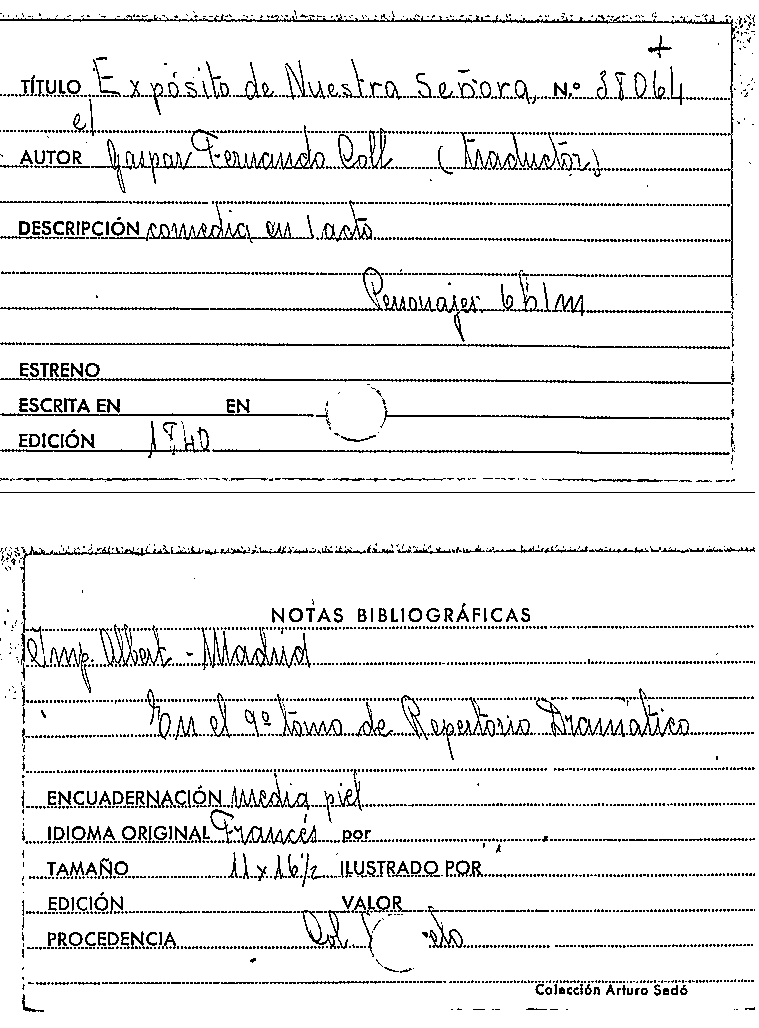 +
TÍTULO Expósito de Nuestra Señora, N.º 38064
el
AUTOR Gaspar Fernando Coll (traductor)
DESCRIPCIÓN comedia en 1 acto
Personajes 6h1m
ESTRENO
ESCRITA EN EN
EDICIÓN 1840
NOTAS BIBLIOGRÁFICAS
Imp. Albert - Madrid
En el 9º tomo de Repertorio Dramático
ENCUADERNACIÓN media piel
IDIOMA ORIGINAL Francés por
TAMAÑO 11 x 16½ ILUSTRADO POR
EDICIÓN VALOR
PROCEDENCIA Col
Colección Arturo Sedó